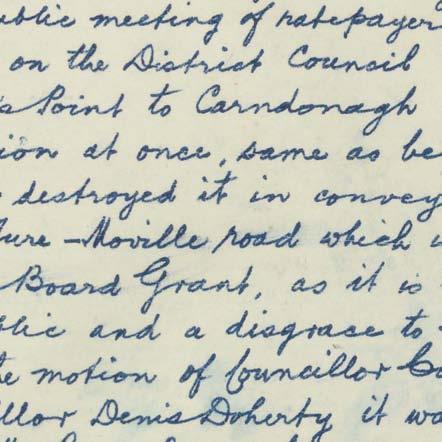 ublic meeting of ratepayer
on the District Council
s Point to Carndonagh
ion at once, same as be
destroyed it in convey
ure - Moville road which
Board Grant, as it is
blic and a disgrace to
e motion of Councillor Co
llor Denis Doherty it wa